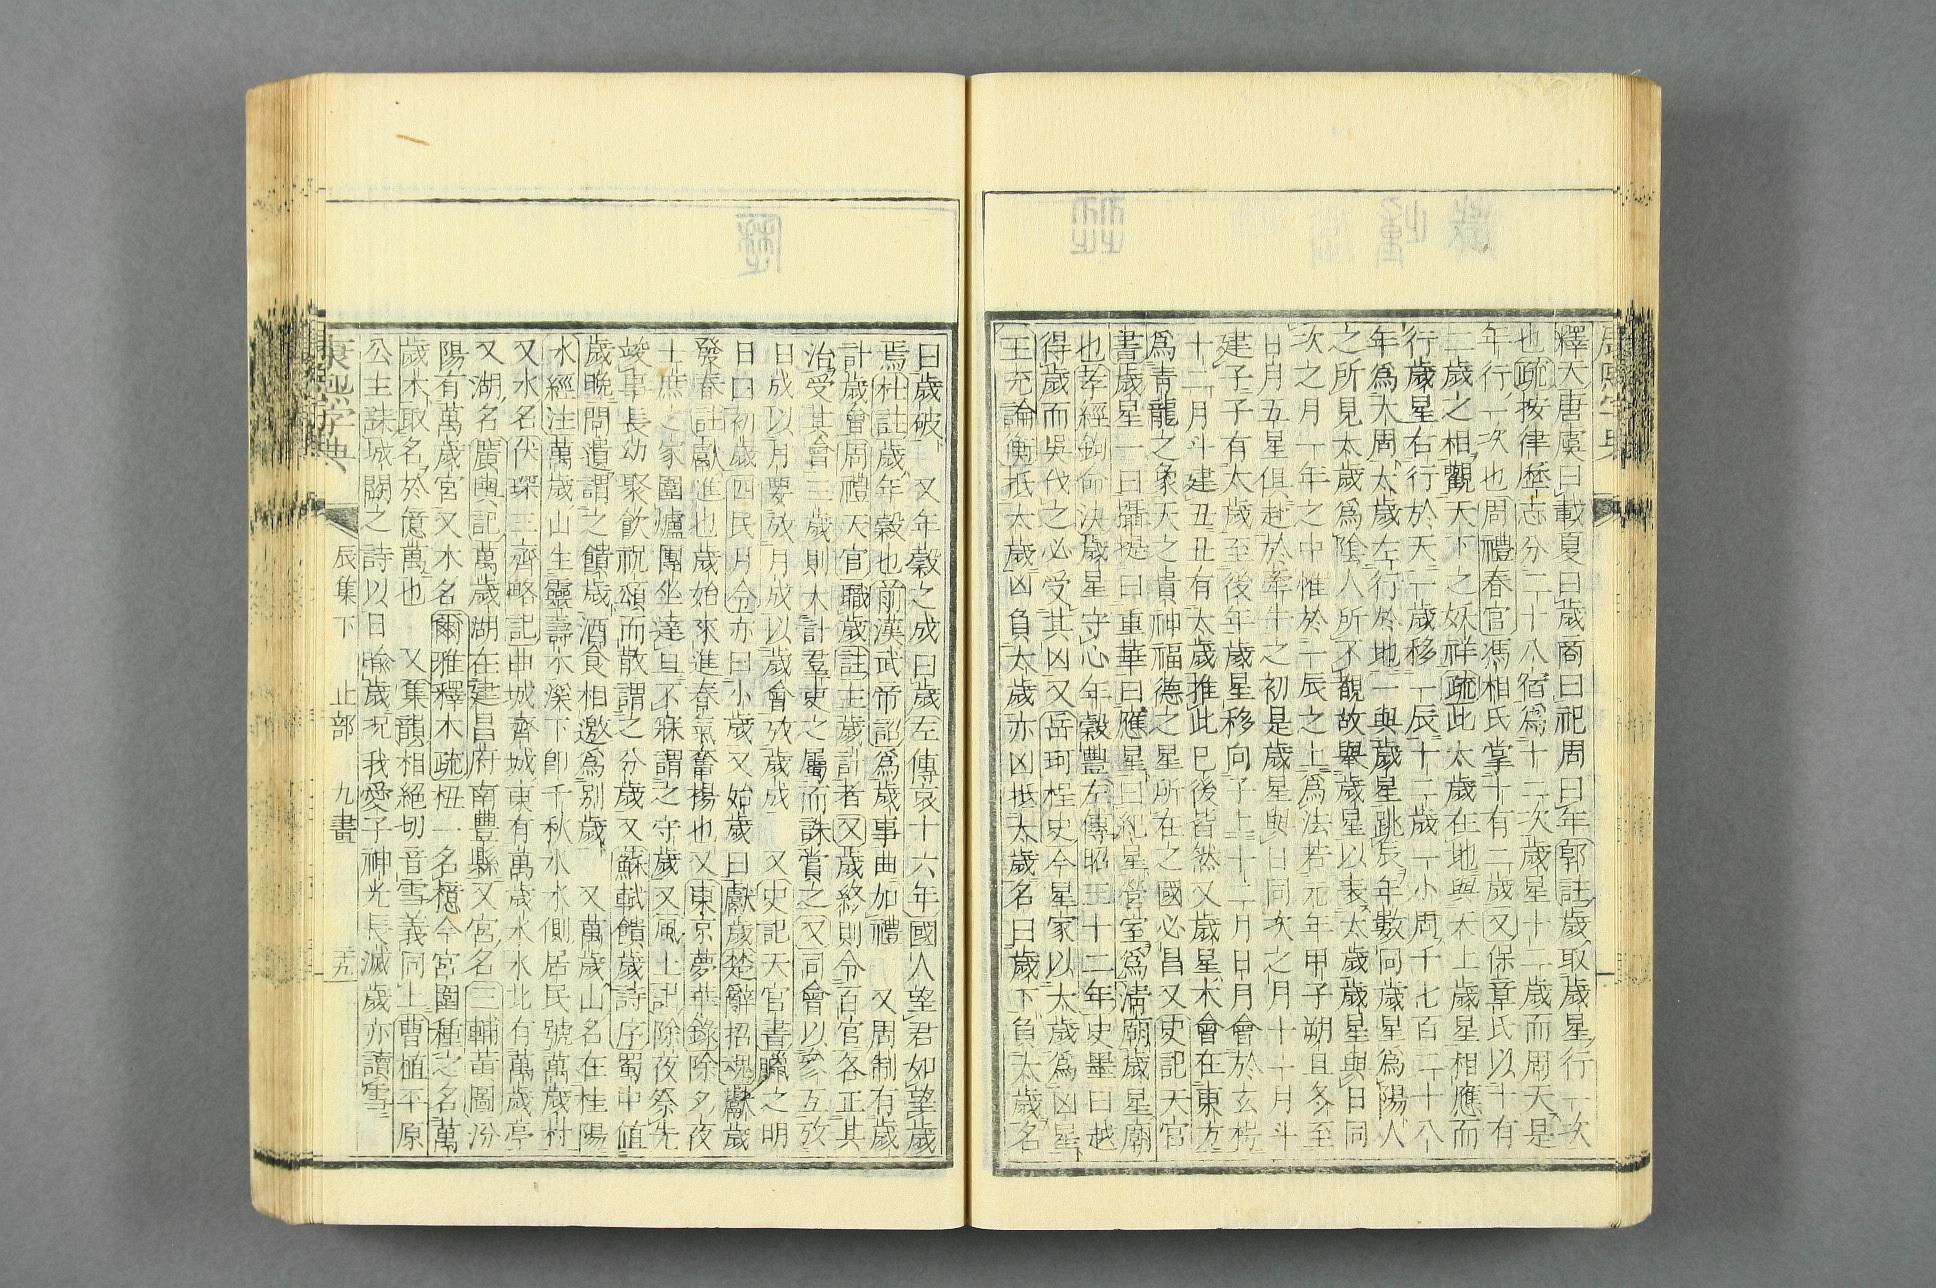 釋天唐虞曰載夏曰歲商曰祀周曰年郭註歲取歲星行一次
也疏按律歷志分二十八宿爲十二次歲星十二歲而周天是
年行一次也周禮春官馮相氏掌十有二歲又保章氏以十有
二歲之相觀天下之妖祥疏此太歲在地與天上歲星相應而
行歲星右行於天一歲移一辰十二歲一小周千七百二十八
年爲大周太歲左行於地一與歲星跳辰年數同歲星爲陽人
之所見太歲爲陰人所不覩故舉歲星以表太歲歲星與日同
次之月一年之中惟於一辰之上爲法若元年甲子朔旦冬至
日月五星俱赴於牽牛之初是歲星與日同次之月十一月斗
建子子有太歲至後年歲星移向子上十二月日月會於玄枵
十二月斗建丑丑有太歲推此已後皆然又歲星木會在東方
爲青龍之象天之貴神福德之星所在之國必昌又史記天官
書歲星一曰攝提曰重華曰應星曰紀星營室爲淸廟歲星廟
也孝經鉤命決歲星守心年穀豐左傳昭三十二年史墨曰越
得歲而吳伐之必受其凶又岳珂桯史今星家以太歲爲凶星
王充論衡抵太歲凶負太歲亦凶抵太歲名曰歲下負太歲名
曰歲破 又年穀之成曰歲左傳哀十六年國人望君如望歲
焉杜註歲年穀也前漢武帝詔爲歲事曲加禮 又周制有歲
計歲會周禮天官職歲註主歲計者又歲終則令百官各正其
治受其會三歲則大計羣吏之屬而誅賞之又司會以參互攷
日成以月要攷月成以歲會攷歲成 又史記天官書臘之明
日曰初歲四民月令亦曰小歲又始歲曰獻歲楚辭招魂獻歲
發春註獻進也歲始來進春氣奮揚也又東京夢華錄除夕夜
士庶之家圍爐團坐達旦不寐謂之守歲又風土記除夜祭先
竣事長幼聚飮祝頌而散謂之分歲又蘇軾饋歲詩序蜀中値
歲晚問遺謂之饋歲酒食相邀爲別歲 又萬歲山名在桂陽
水經注萬歲山生靈壽木溪下卽千秋水水側居民號萬歲村
又水名伏琛三齊略記曲城齊城東有萬歲水水北有萬歲亭
又湖名廣輿記萬歲湖在建昌府南豐縣又宮名三輔黃圖汾
陽有萬歲宮又木名爾雅釋木疏杻一名檍今宮園種之名萬
歲木取名於億萬也 又集韻相絕切音雪義同上曹植平原
公主誄城闕之詩以日喻歲況我愛子神光長滅歲亦讀雪
康熙字典 辰集下 止部 九畫